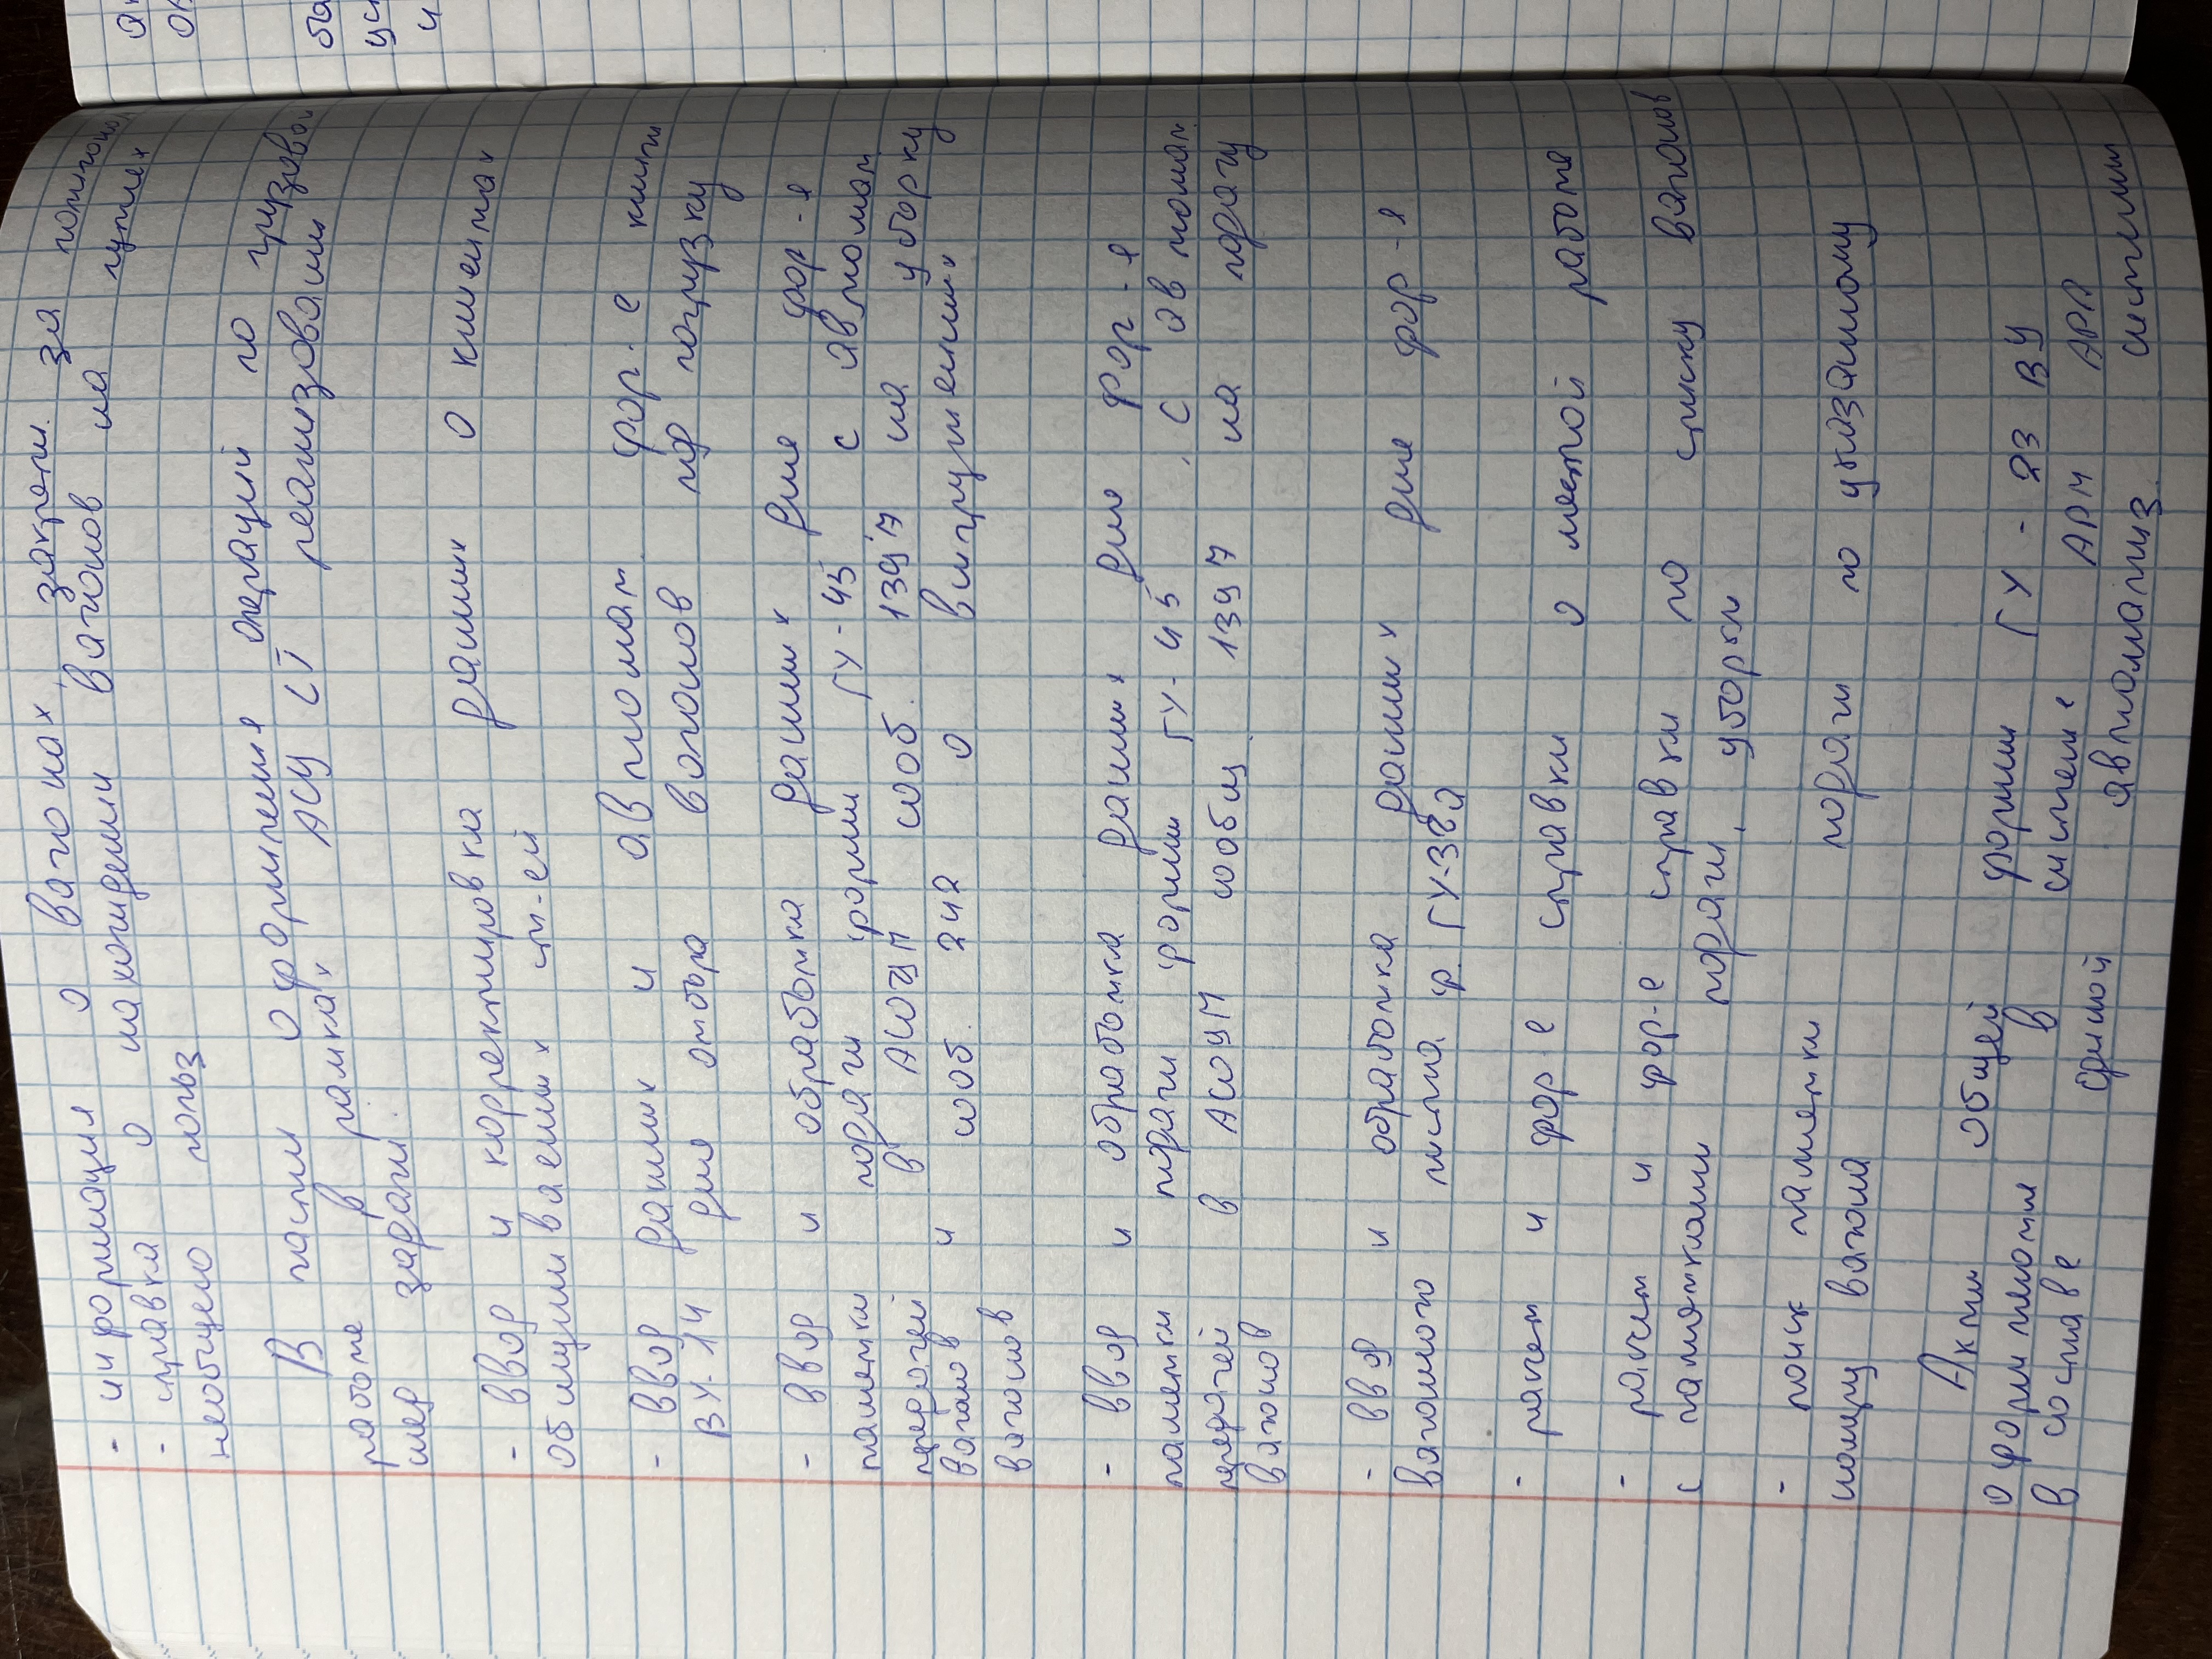 - информация о вагонах, закрепл. за полигоном
- справка о нахождении вагонов на путях
необщего польз
В части оформления операций по грузовой
работе в рамках АСУ СТ реализованы
след задачи.
- ввод и корректировка данных о клиентах
обслуживаемых ст-ей
- ввод данных и автомат. фор-е книги
ВУ-14 для отбора вагонов под погрузку
- ввод и обработка данных для фор-я
памятки подачи формы ГУ-45 с автомат.
передачей в АСОУП сооб. 1397 на уборку
вагонов и сооб. 242 о выгруженных
вагонов
- ввод и обработка данных для фор-я
памятки подачи формы ГУ-45, с автомат.
передачей в АСОУП сообщ. 1397 на подачу
вагонов
- ввод и обработка данных для фор-я
вагонного листа ф. ГУ-38а
- расчет и фор е справки о местной работе
- расчет и фор-е справки по списку вагонов
с памятками подачи, уборки
- поиск памятки подачи по указанному
номеру вагона
Акты общей формы ГУ-23 ВУ
оформляются в системе АРМ АРЛ
в составе единой автоматиз. системы